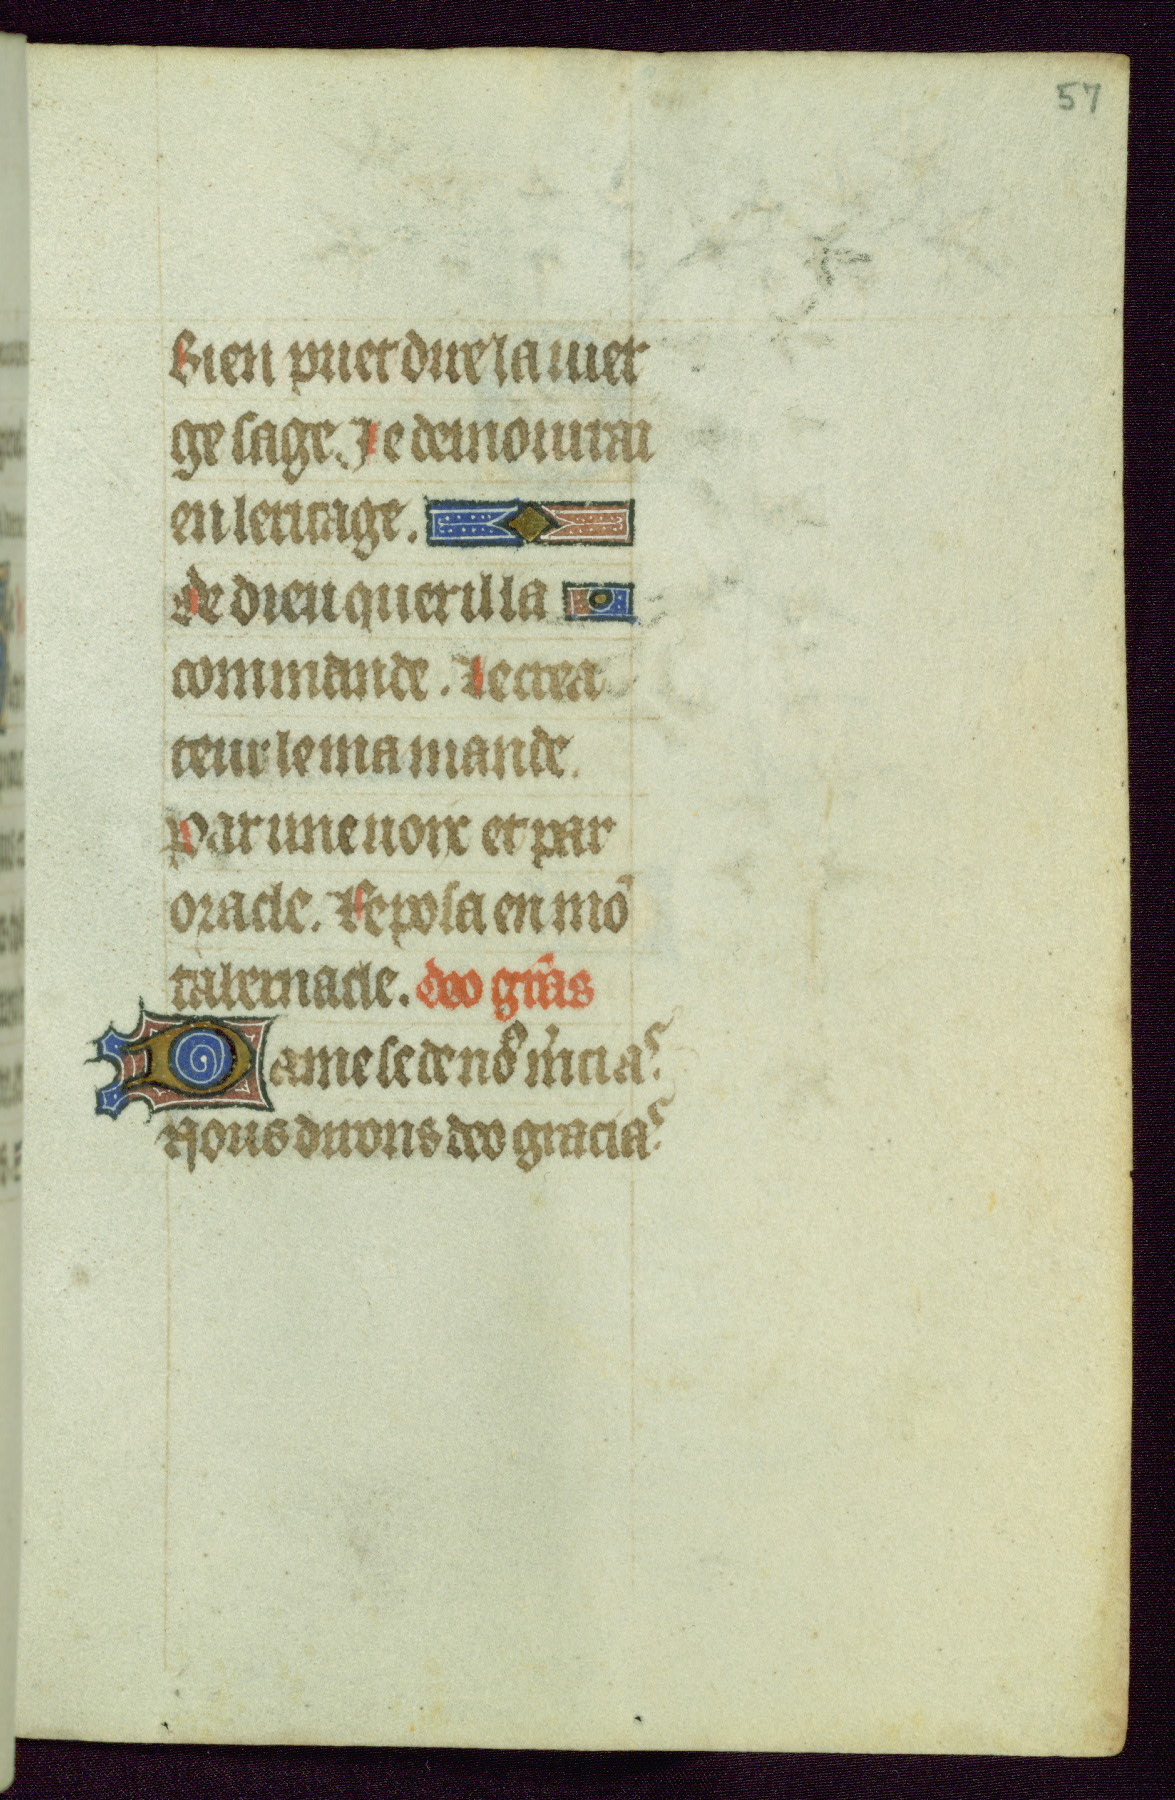 57
Bien puet dire la vier
ge sage. Je demourai
en leritage.
de dieu quer il la
commande. Le crea
teur le ma mande.
par une voix et par
oracle. Reposa en mō
tabernacle. deo gr̄as
Dame se de nō m̄cias
Nous dirons deo gracias